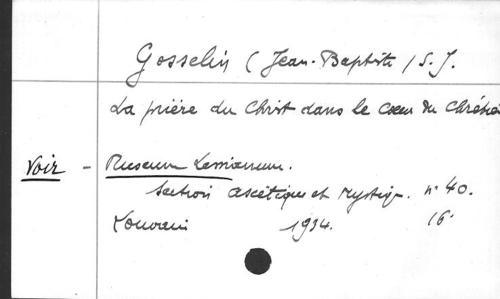 Gosselin (Jean-Baptiste) S.J.
La prière du Christ dans le cœur du Chrétien
Voir - Museum Lessianum.
Section ascétique et mystiq. n° 40.
Louvain 1934. 16°